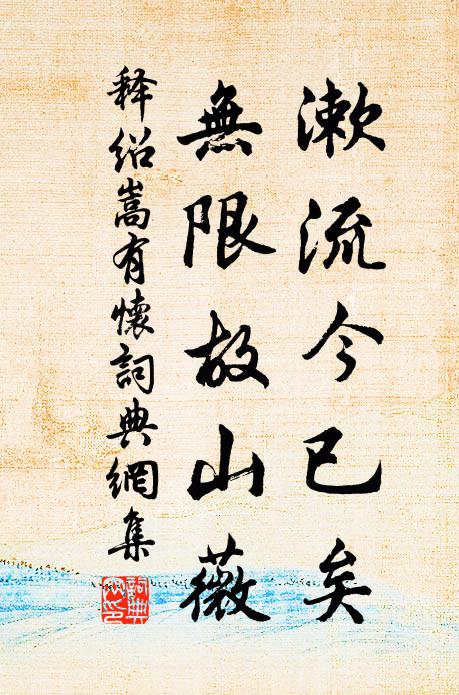 漱流今已矣
無限故山薇
释绍嵩有懷詞典網集